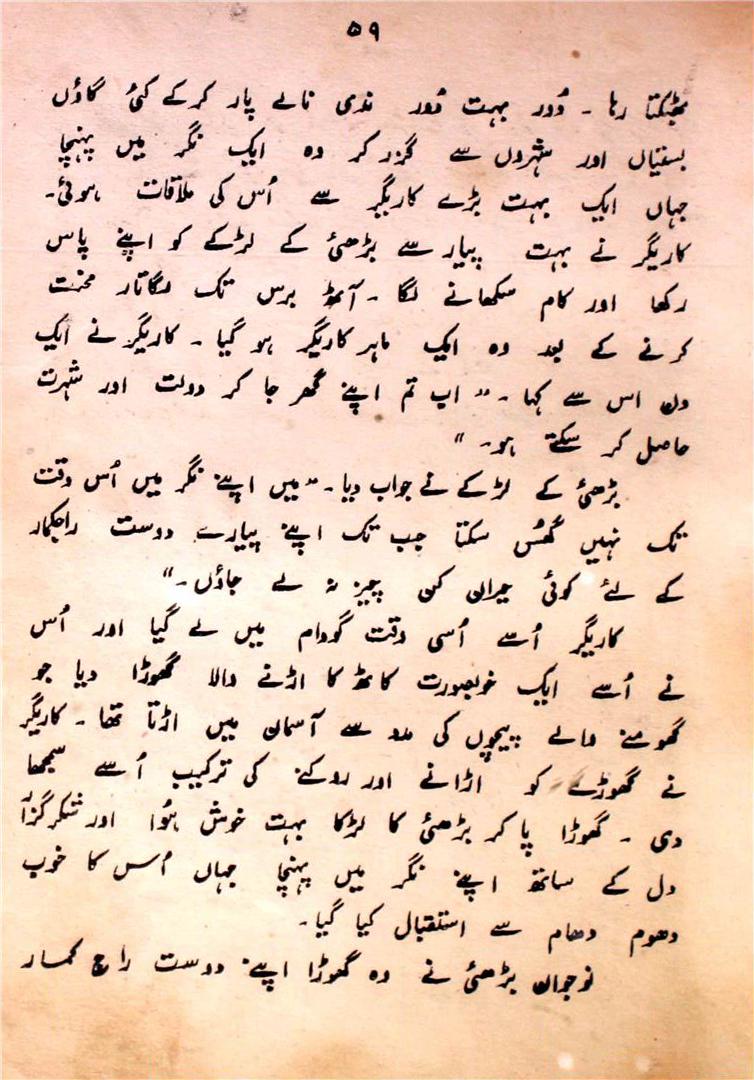 ۵۹
بھٹکتا رہا ۔ دُور بہت دُور ندی نالے پار کر کے کئی گاؤں
بستیاں اور شہروں سے گزر کر وہ ایک نگر میں پہنچا
جہاں ایک بہت بڑے کاریگر سے اُس کی ملاقات ہوئی۔
کاریگر نے بہت پیار سے بڑھئی کے لڑکے کو اپنے پاس
رکھا اور کام سکھانے لگا ۔ آٹھ برس تک لگاتار محنت
کرنے کے بعد وہ ایک ماہر کاریگر ہو گیا ۔ کاریگر نے ایک
دن اس سے کہا ۔ " اب تم اپنے گھر جا کر دولت اور شہرت
حاصل کر سکتے ہو۔ "
بڑھئی کے لڑکے نے جواب دیا ۔ " میں اپنے نگر میں اُس وقت
تک نہیں گھُس سکتا جب تک اپنے پیارے دوست راجکمار
کے لئے کوئی حیران کن چیز نہ لے جاؤں ۔ "
کاریگر اُسے اُسی وقت گودام میں لے گیا اور اُس
نے اُسے ایک خوبصورت کاٹھ کا اڑنے والا گھوڑا دیا جو
گھومنے والے پیچوں کی مدد سے آسمان میں اڑتا تھا ۔ کاریگر
نے گھوڑے کو اڑانے اور روکنے کی ترکیب اُسے سمجھا
دی ۔ گھوڑا پا کر بڑھئی کا لڑکا بہت خوش ہُوا اور شکر گزار
دل کے ساتھ اپنے نگر میں پہنچا جہاں اُس کا خوب
دھوم دھام سے استقبال کیا گیا ۔
نوجوان بڑھئی نے وہ گھوڑا اپنے دوست راج کمار